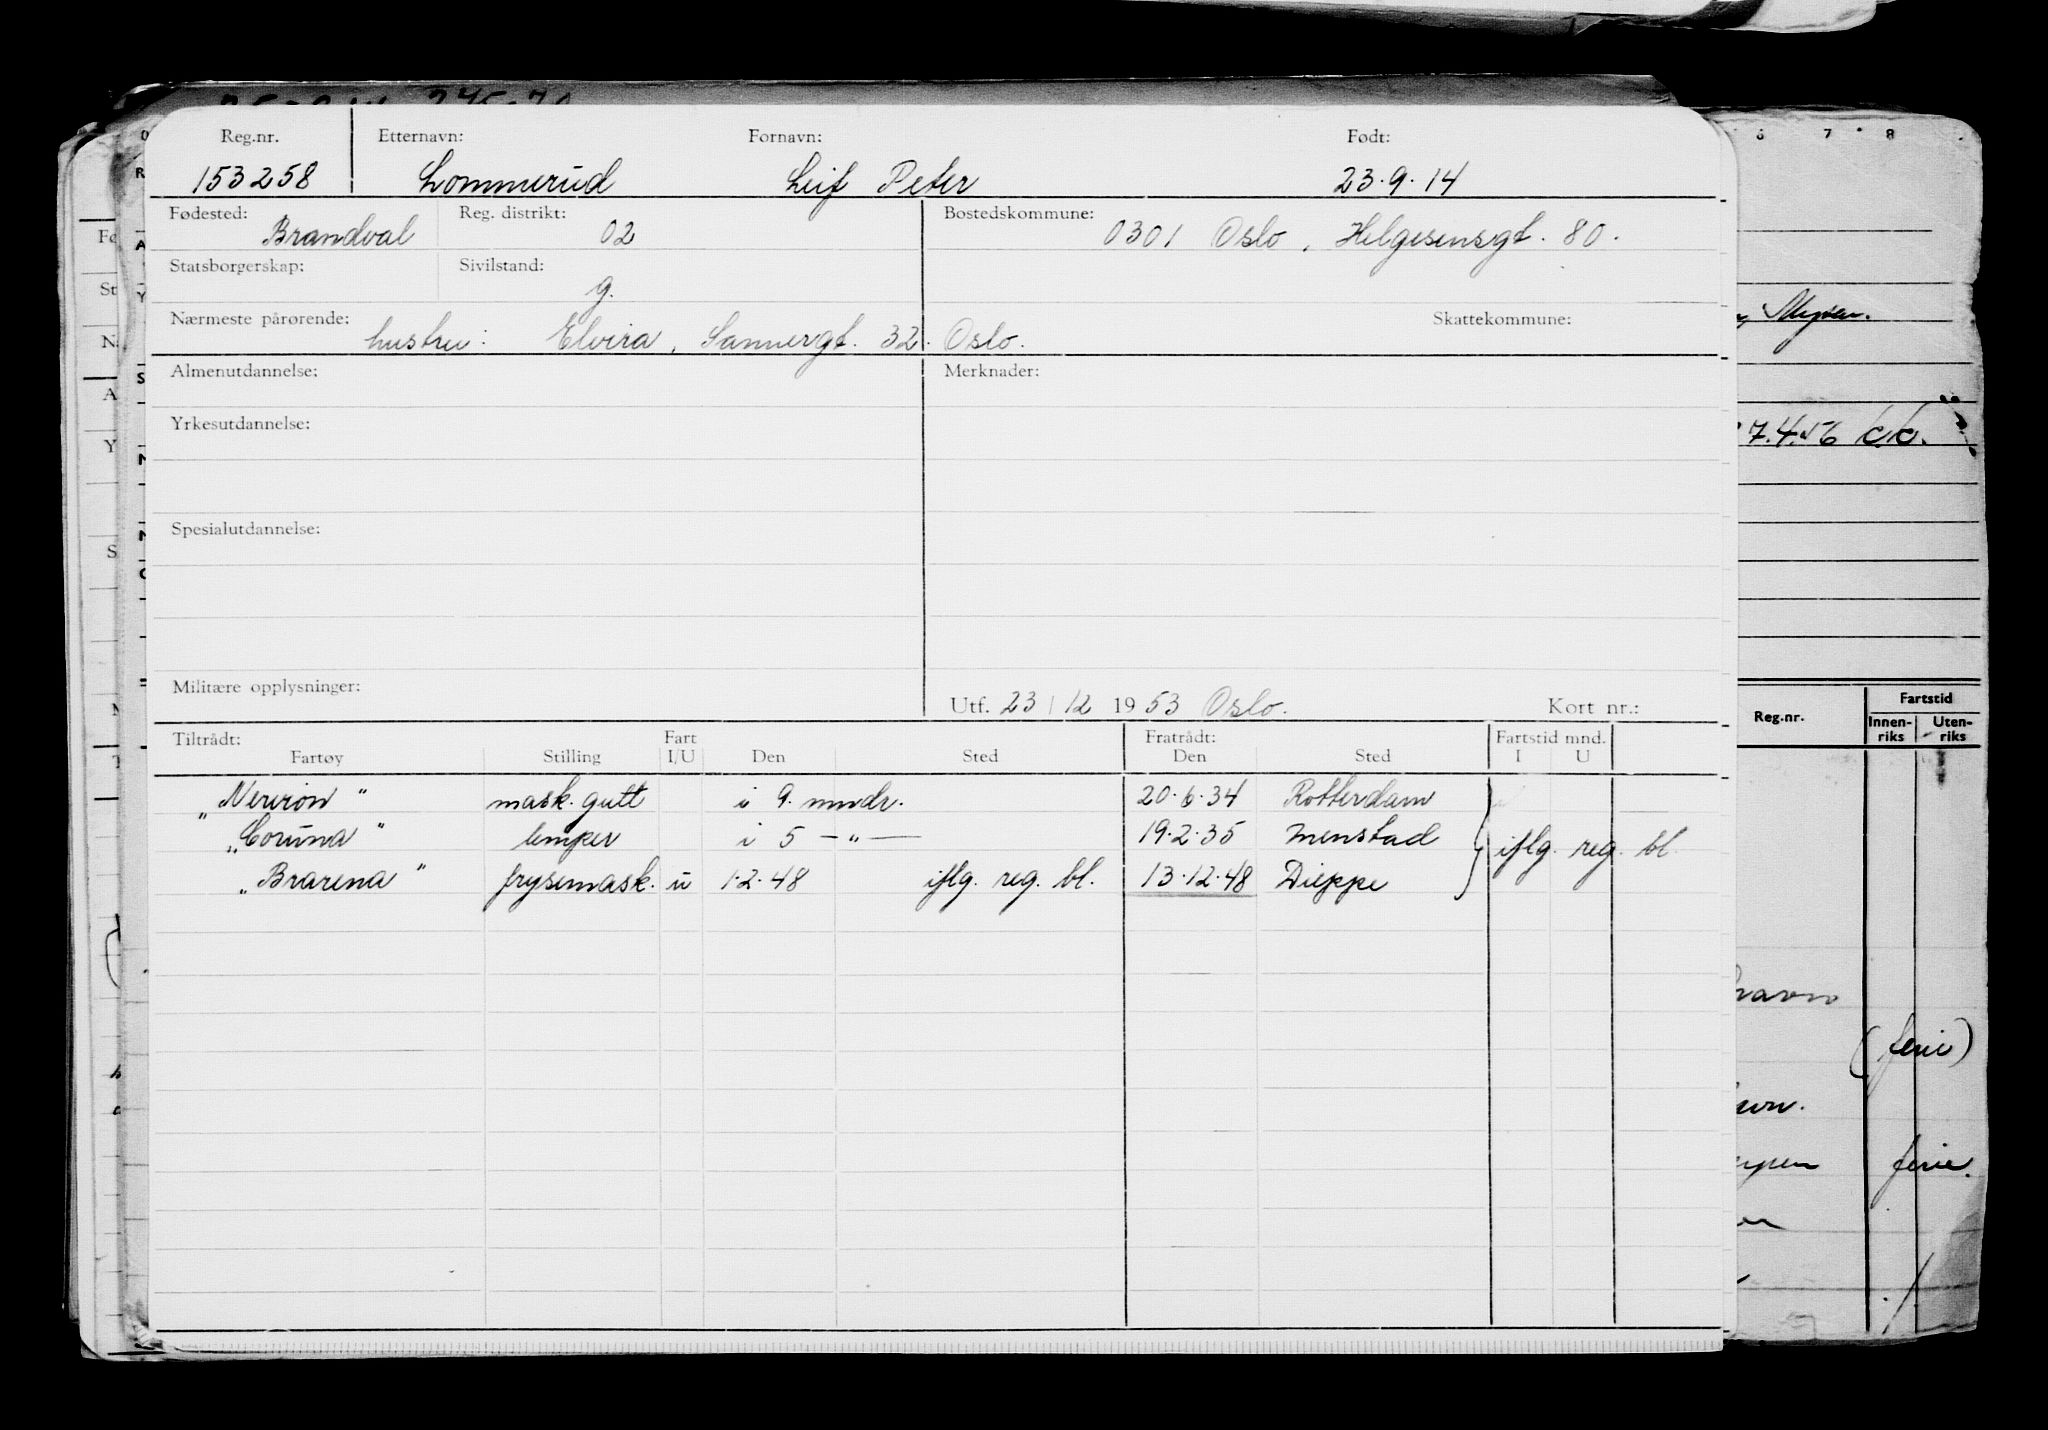 Reg.nr. Etternavn: Fornavn: Født:
153258 Lommerud Leif Peter 23.9.14
Fødested: Reg. distrikt: Bostedskommune:
Brandval 02 0301 Oslo, Helgesensgt. 80.
Statsborgerskap: Sivilstand:
g.
Nærmeste pårørende: Skattekommune:
hustru: Elvira, Sannergt. 32. Oslo.
Almenutdannelse: Merknader:
Yrkesutdannelse:
Spesialutdannelse:
Militære opplysninger:
Utf. 23/12 1953 Oslo. Kort nr.:
Tiltrådt: Fart Fratrådt: Fartstid mnd.
Fartøy Stilling I/U Den Sted Den Sted I U
mask. gutt i 9. mndr. 20.6.34 Rotterdam
"Coruna" lemper i 5 —"— 19.2.35 Menstad } iflg. reg. bl.
"Brarena" frysemask. u 1.2.48 iflg. reg. bl. 13.12.48 Dieppe
6 7 8
7.4.56
Fartstid
Reg.nr. Innen-riks Uten-riks
havn
(ferie)
ferie.